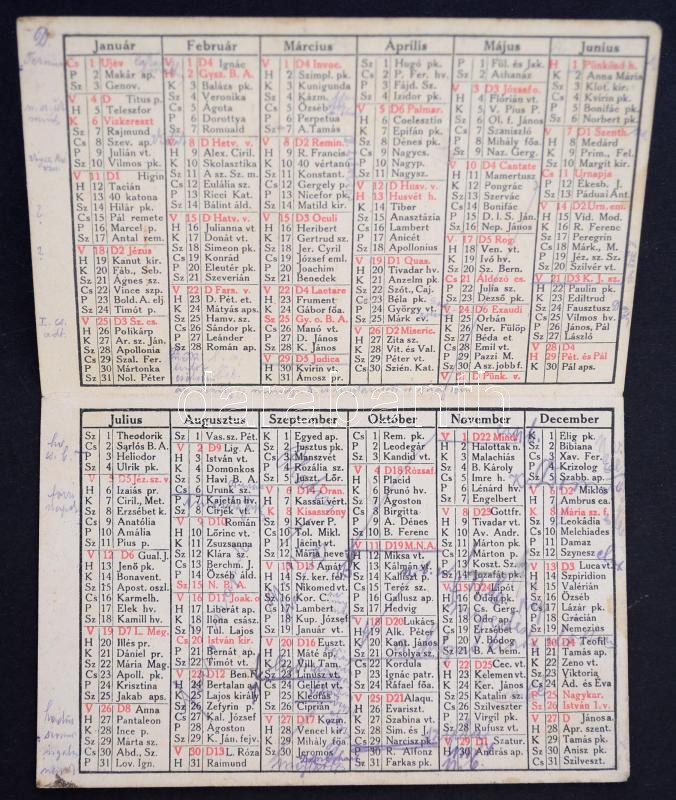 Január
Cs 1 Ujév
P 2 Makár ap.
Sz 3 Genov.
V 4 D Titus p.
H 5 Teleszfor
K 6 Vizkereszt
Sz 7 Rajmund
Cs 8 Szev. ap.
P 9 Julián vt.
Sz 10 Vilmos pk.
V 11 D1 Higin
H 12 Tacián
K 13 40 katona
Sz 14 Hilár pk.
Cs 15 Pál remete
P 16 Marcel p.
Sz 17 Antal rem.
V 18 D2 Jézus
H 19 Kanut kir.
K 20 Fáb., Seb.
Sz 21 Ágnes sz.
Cs 22 Vince szp.
P 23 Bold. A. elj.
Sz 24 Timót p.
V 25 D3 Sz. cs.
H 26 Polikárp
K 27 Ar. sz. Ján.
Sz 28 Apollonia
Cs 29 Szal. Fer.
P 30 Mártonka
Sz 31 Nol. Péter
Február
V 1 D4 Ignác
H 2 Gysz. B. A.
K 3 Balázs pk.
Sz 4 Veronika
Cs 5 Ágota
P 6 Dorottya
Sz 7 Romuald
V 8 D Hetv. v.
H 9 Alex. Ciril.
K 10 Skolasztika
Sz 11 A sz. Sz. m.
Cs 12 Eulália sz.
P 13 Ricci Kat.
Sz 14 Bálint áld.
V 15 D Hatv. v.
H 16 Julianna vt
K 17 Donát vt.
Sz 18 Simeon pk.
Cs 19 Konrád
P 20 Eleutér pk.
Sz 21 Szeverián
V 22 D Fars. v.
H 23 D. Pét. et.
K 24 Mátyás aps.
Sz 25 Hamv. sz.
Cs 26 Sándor pk.
P 27 Leánder
Sz 28 Román ap.
Március
V 1 D4 Invoc.
H 2 Szimpl. pk.
K 3 Kunigunda
Sz 4 Kázm.
Cs 5 Özséb
P 6 Perpetus
Sz 7 A. Tamás
V 8 D2 Remin.
H 9 R. Francis.
K 10 40 vértanú
Sz 11 Konstant.
Cs 12 Gergely p.
P 13 Nicefor pk.
Sz 14 Matild kir.
V 15 D3 Oculi
H 16 Heribert
K 17 Gertrud sz.
Sz 18 Jer. Cyril
Cs 19 József eml.
P 20 Joachim
Sz 21 Benedek
V 22 D4 Laetare
H 23 Frument
K 24 Gábor főa.
Sz 25 Gy. o. B. A.
Cs 26 Manó vt.
P 27 D. János
Sz 28 K. János
V 29 D5 Judica
H 30 Kvirin vt.
K 31 Ámosz pr.
Április
Sz 1 Hugó pk.
Cs 2 P. Fer. hv.
P 3 Fájd. Sz.
Sz 4 Izidor pk.
V 5 D6 Palmar.
H 6 Coelesztin
K 7 Epifán pk.
Sz 8 Dénes pk.
Cs 9 Nagycs.
P 10 Nagyp.
Sz 11 Nagysz.
V 12 D Husv. v.
H 13 Husvét h.
K 14 Tibor
Sz 15 Anasztázia
Cs 16 Lambert
P 17 Anicét
Sz 18 Apollonius
V 19 D1 Quas.
H 20 Tivadar hv.
K 21 Anzelm pk.
Sz 22 Szót., Caj.
Cs 23 Béla pk.
P 24 György vt.
Sz 25 Márk ev.
V 26 D2 Miseric.
H 27 Zita sz.
K 28 Vit. és Val.
Sz 29 Péter vt.
Cs 30 Szién. Kat.
Május
P 1 Fül. és Jak.
Sz 2 Athanáz
V 3 D3 József o.
H 4 Flórián vt.
K 5 V. Pius P.
Sz 6 Ol. f. János
Cs 7 Szaniszló
P 8 Mihály főa.
Sz 9 Naz. Gerg.
V 10 D4 Cantate
H 11 Mamertusz
K 12 Pongrác
Sz 13 Szervác
Cs 14 Bonifác
P 15 D. l. S. Ján.
Sz 16 Nep. János
V 17 D5 Rog.
H 18 Ven. vt.
K 19 Ivó hv.
Sz 20 Sz. Bern.
Cs 21 Áldozó cs.
P 22 Julia sz.
Sz 23 Dezső pk.
V 24 D6 Exaudi
H 25 Orbán
K 26 Ner. Fülöp
Sz 27 Béda et.
Cs 28 Emil vt.
P 29 Pazzi M.
Sz 30 Asz. jobb f.
V 31 E Pünk. v.
Junius
H 1 Pünkösd h.
K 2 Anna Mária
Sz 3 Klot. kir.
Cs 4 Kvirin pk.
P 5 Bonifác pk.
Sz 6 Norbert pk.
V 7 D1 Szenth.
H 8 Medárd
K 9 Prim., Fel.
Sz 10 Margit kir.
Cs 11 Urnapja
P 12 Ékesb. J.
Sz 13 Páduai Ant.
V 14 D2 Urn. em.
H 15 Vid, Mod.
K 16 R. Ferenc
Sz 17 Peregrin
Cs 18 Márk., M.
P 19 Jéz. sz. Sz.
Sz 20 Szilvér vt.
V 21 D3 K. J. sz.
H 22 Paulin pk.
K 23 Ediltrud
Sz 24 Fausztusz
Cs 25 Vilmos hv.
P 26 János, Pál
Sz 27 László
V 28 D4
H 29 Pét. és Pál
K 30 Pál aps.
darabanth
Julius
Sz 1 Theodorik
Cs 2 Sarlós B. A.
P 3 Heliodor
Sz 4 Ulrik pk.
V 5 D5 Jéz. sz. v.
H 6 Izaiás pr.
K 7 Ciril, Met.
Sz 8 Erzsébet k.
Cs 9 Anatólia
P 10 Amália
Sz 11 Pius p.
V 12 D6 Gual. J.
H 13 Jenő pk.
K 14 Bonavent.
Sz 15 Apost. oszl.
Cs 16 Karmelh.
P 17 Elek hv.
Sz 18 Kamill hv.
V 19 D7 L. Meg.
H 20 Illés pr.
K 21 Dániel pr.
Sz 22 Mária Mag.
Cs 23 Apoll. pk.
P 24 Krisztina
Sz 25 Jakab aps.
V 26 D8 Anna
H 27 Pantaleon
K 28 Ince p.
Sz 29 Márta sz.
Cs 30 Abd., Sz.
P 31 Lov. Ign.
Augusztus
Sz 1 Vas. sz. Pét.
V 2 D9 Lig. A.
H 3 István vt.
K 4 Domonkos
Sz 5 Havi B. A.
Cs 6 Urunk sz.
P 7 Kajetán hv.
Sz 8 Cirjék vt.
V 9 D10 Román
H 10 Lőrinc vt.
K 11 Zsuzsanna
Sz 12 Klára sz.
Cs 13 Berchm. J.
P 14 Özséb áld.
Sz 15 N. B. A.
V 16 D11 Joak. o.
H 17 Liberát ap.
K 18 Ilona csász.
Sz 19 Tul. Lajos
Cs 20 István kir.
P 21 Bernát ap.
Sz 22 Timót vt.
V 23 D12 Ben. F.
H 24 Bertalan ap.
K 25 Lajos király
Sz 26 Zefyrin p.
Cs 27 Kal. József
P 28 Ágoston
Sz 29 K. Ján. fejv.
V 30 D13 L. Róza
H 31 Raimund
Szeptember
K 1 Egyed ap.
Sz 2 Jusztus pk.
Cs 3 Manszvét
P 4 Rozália sz.
Sz 5 Juszt. Lőr.
V 6 D14 Őran.
H 7 Kassai vért.
K 8 Kisasszony
Sz 9 Klaver P.
Cs 10 Tol. Mikl.
P 11 Jácint vt.
Sz 12 Mária neve
V 13 D15 Amát
H 14 Sz. ker. fel.
K 15 Nikomed vt.
Sz 16 Kor. Cip.
Cs 17 Lambert
P 18 Kup. József
Sz 19 Január vt.
V 20 D16 Euszt.
H 21 Máté ap.
K 22 Vill. Tam.
Sz 23 Linusz vt.
Cs 24 Gellért vt.
P 25 Kleofás
Sz 26 Ciprián
V 27 D17 Kozm.
H 28 Vencel kir.
K 29 Mihály főa.
Sz 30 Jeromos
Október
Cs 1 Rem. pk.
P 2 Leodegár
Sz 3 Kandid vt.
V 4 D18 Rózsaf.
H 5 Placid
K 6 Brunó hv.
Sz 7 Ágostos
Cs 8 Birgitta
P 9 A. Dénes
Sz 10 B. Ferenc
V 11 D19 M. N. A.
H 12 Miksa vt.
K 13 Kálmán vt.
Sz 14 Kalliszt p.
Cs 15 Teréz sz.
P 16 Gallusz ap.
Sz 17 Hedvig
V 18 D20 Lukács
H 19 Alk. Péter
K 20 Kant. János
Sz 21 Orsolya sz.
Cs 22 Kordula
P 23 Ignác patr.
Sz 24 Ráfael főa.
V 25 D21 Alaqu.
H 26 Evariszt.
K 27 Szabina vt.
Sz 28 Sim. és J.
Cs 29 Narcisz pk.
P 30 R. Alfonz
Sz 31 Farkas pk.
November
V 1 D22 Mind.
H 2 Halottak n.
K 3 Malachiás
Sz 4 B. Károly
Cs 5 Imre h.
P 6 Lénárd hv.
Sz 7 Engelbert
V 8 D23 Gottfr.
H 9 Tivadar vt.
K 10 Av. Andr.
Sz 11 Márton pk.
Cs 12 Márton p.
P 13 Koszt. Sz.
Sz 14 Jozafát pk.
V 15 D24 Lipót
H 16 Ödön pk.
K 17 Cs. Gerg.
Sz 18 Odó ap.
Cs 19 Erzsébet
P 20 V. Bódog
Sz 21 B. A. bem.
V 22 D25 Cec. vt.
H 23 Kelemen vt.
K 24 Ker. János
Sz 25 Katalin sz.
Cs 26 Szilveszter
P 27 Virgil pk.
Sz 28 Rufusz vt.
V 29 D1 Szatur.
H 30 András ap.
December
K 1 Elig pk.
Sz 2 Bibiana
Cs 3 Xav. Fer.
P 4 Krizolog
Sz 5 Szabb. ap.
V 6 D2 Miklós
H 7 Ambrus ea.
K 8 Mária sz. f.
Sz 9 Leokádia
Cs 10 Melchiades
P 11 Damaz
Sz 12 Szynesz
V 13 D3 Luca vt.
H 14 Szpiridion
K 15 Valérián
Sz 16 Özséb
Cs 17 Lázár pk.
P 18 Grácián
Sz 19 Nemezius
V 20 D4 Teofil
H 21 Tamás ap.
K 22 Zeno vt.
Sz 23 Viktoria
Cs 24 Ád. és Éva
P 25 Nagykar.
Sz 26 István 1. v.
V 27 D János a.
H 28 Apr. szent.
K 29 Tamás pk.
Sz 30 Anisz pk.
Cs 31 Szilveszt.